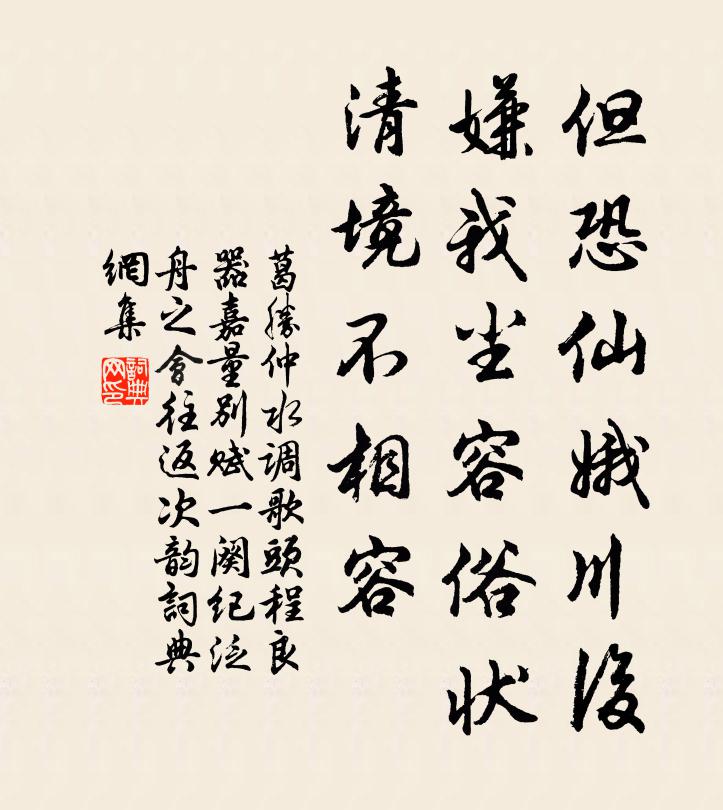 但恐仙娥川後
嫌我尘容俗状
清境不相容
葛勝仲水调歌頭程良
器嘉量别赋一阕纪泛
舟之會往返次韵詞典
網集
詞典網印